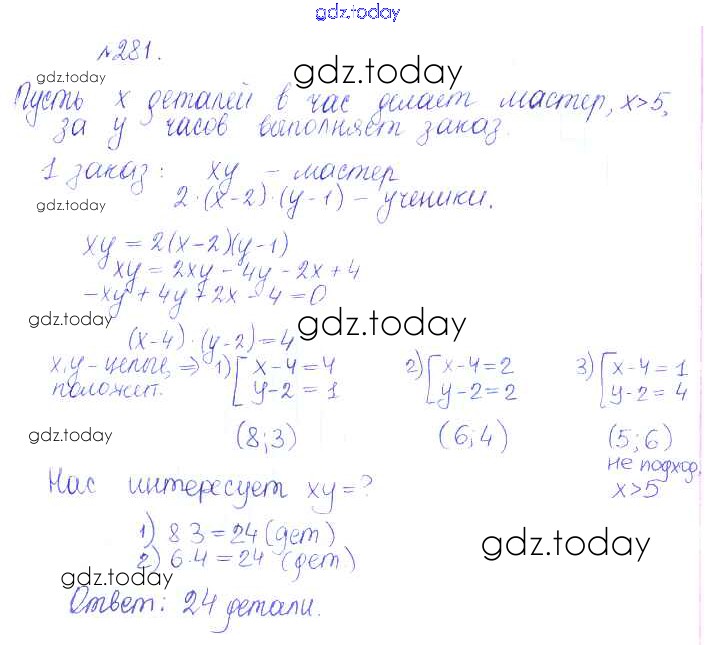 gdz.today
№281.
gdz.today
gdz.today
Пусть x деталей в час делает мастер, x>5,
за y часов выполняет заказ.
1 заказ: xy - мастер
gdz.today
2·(x-2)·(y-1) - ученики.
gdz.today
xy = 2(x-2)(y-1)
xy = 2xy - 4y - 2x + 4
-xy + 4y + 2x - 4 = 0
gdz.today
gdz.today
(x-4)·(y-2) = 4
x, y - целые, ⇒ 1) [ x-4=4 2) [ x-2=2 3) [ x-4=1
положит. y-2=1 y-2=2 y-2=4
gdz.today
(8;3) (6;4) (5;6)
не подход.
x>5
Нас интересует xy=?
1) 8 3 = 24 (дет)
2) 6·4 = 24 (дет)
gdz.today
gdz.today
Ответ: 24 детали.